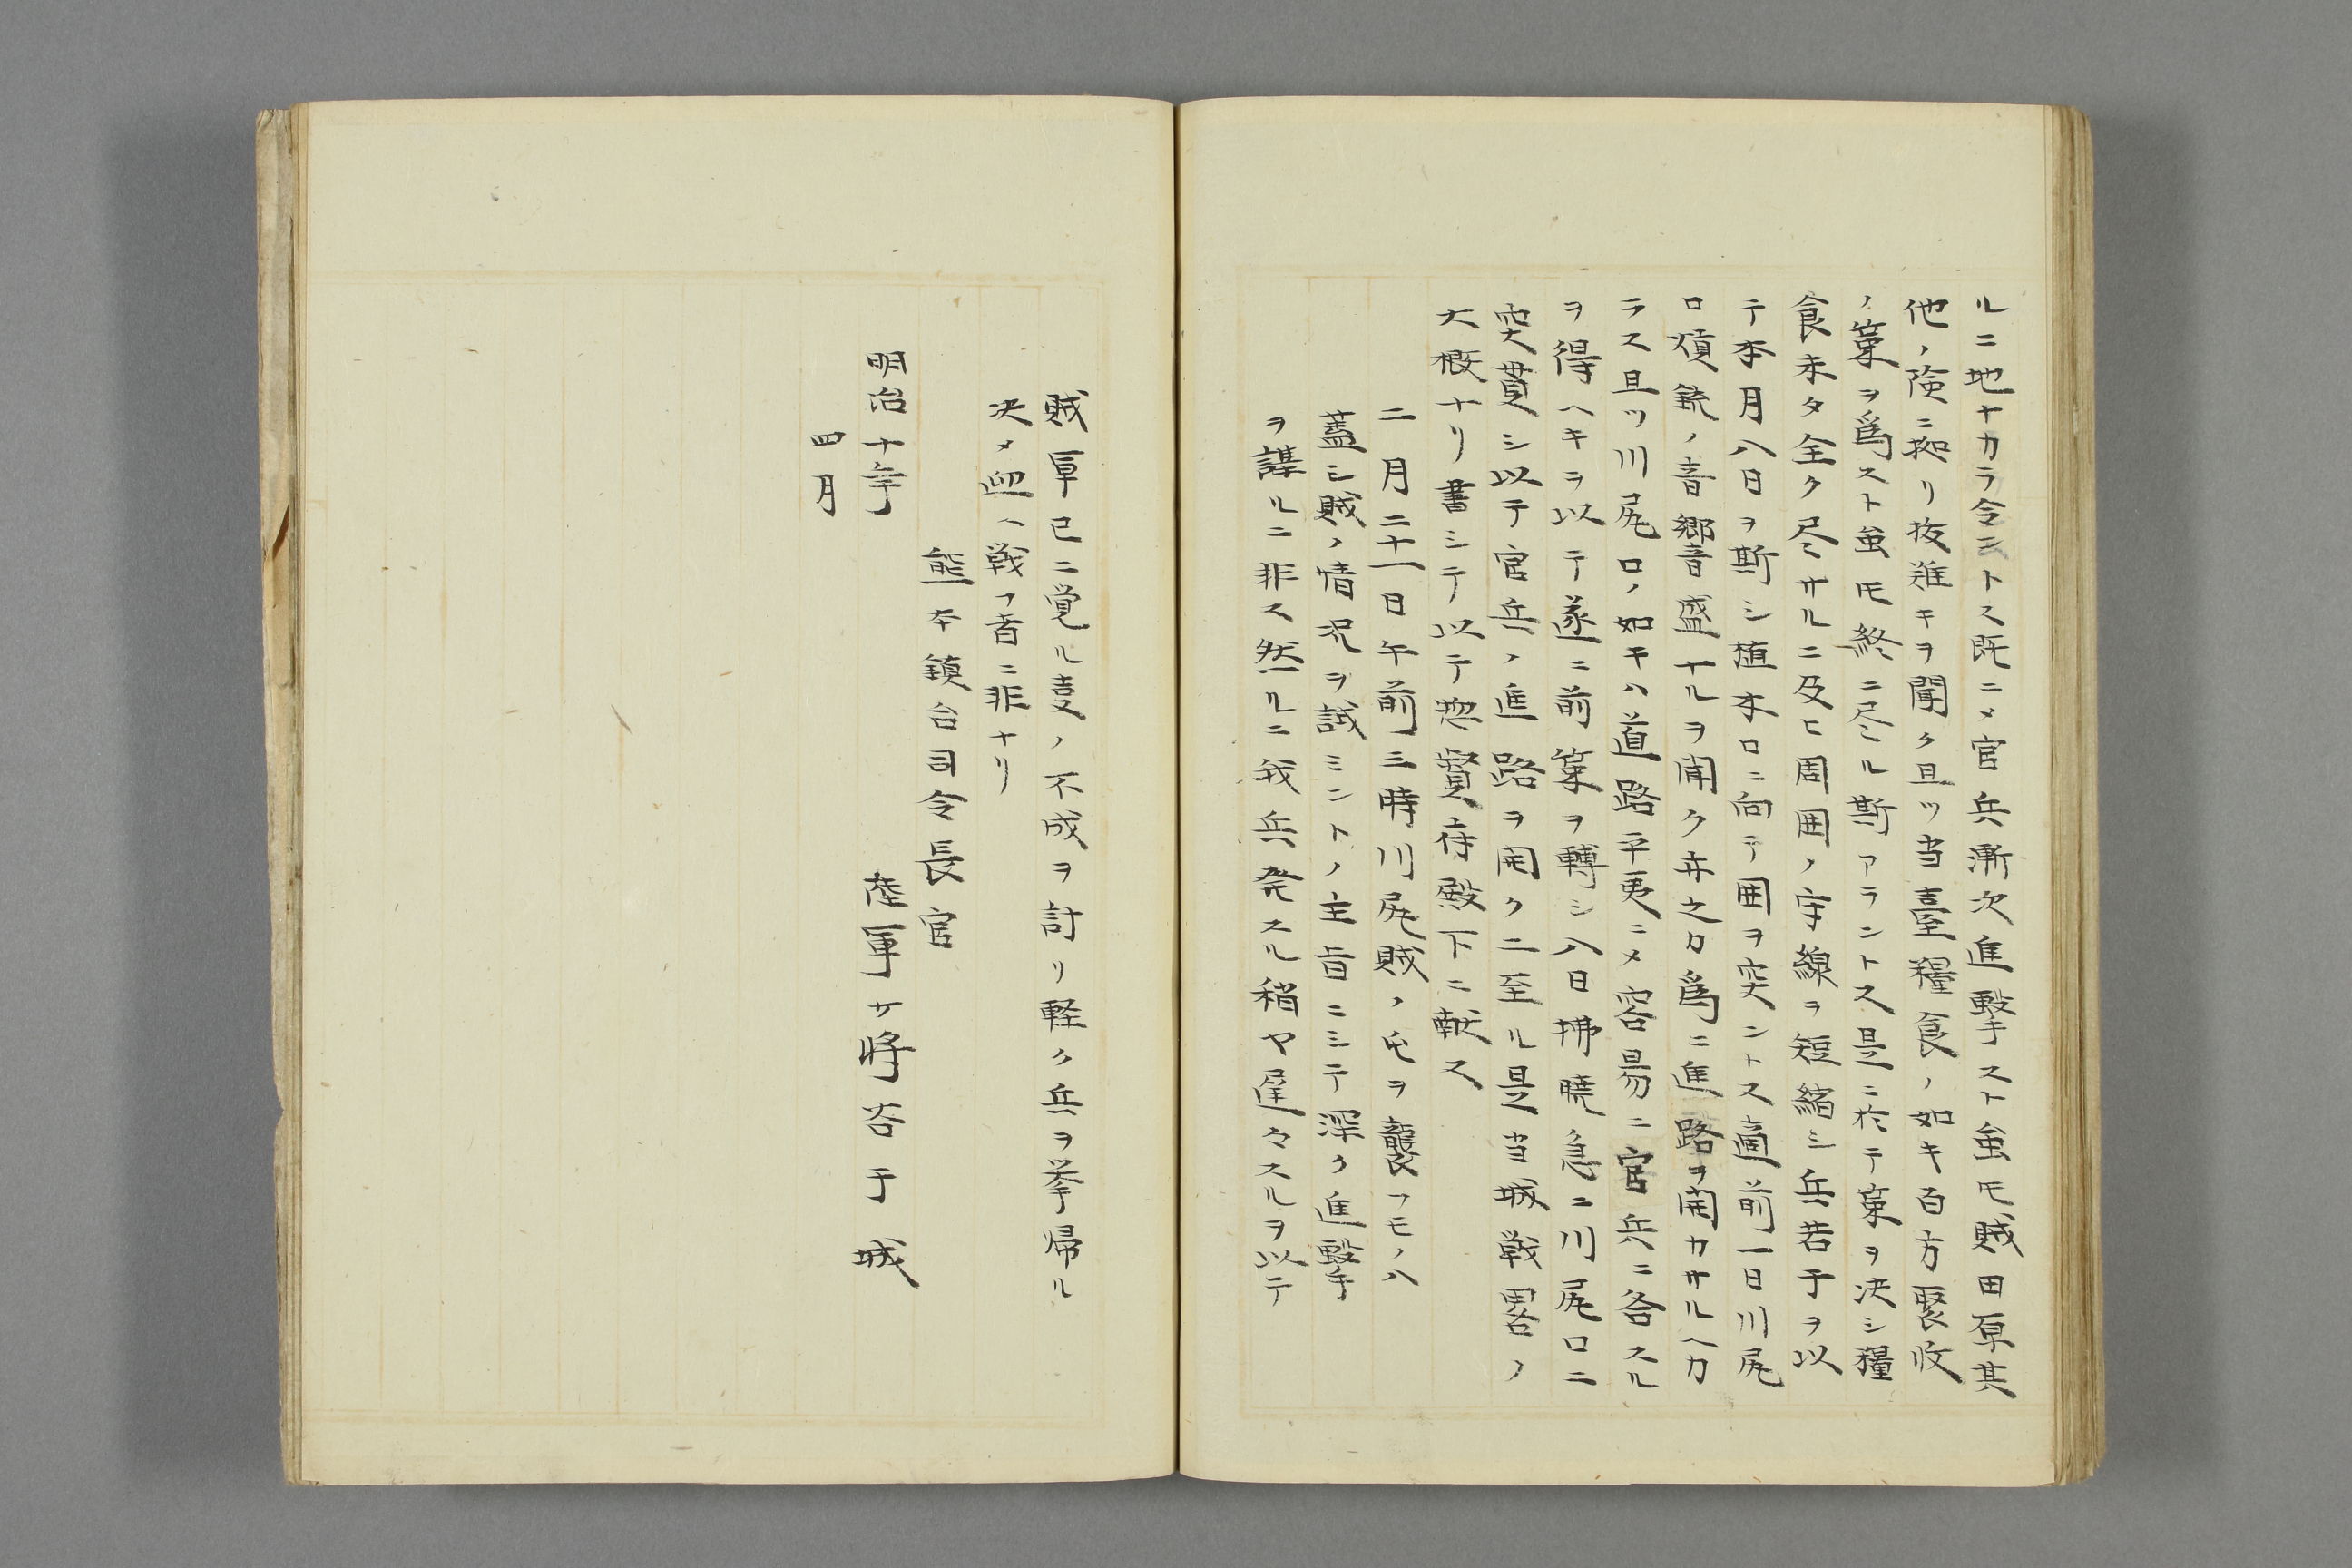 ルニ地ナカラ令ントス既ニメ官兵漸次進撃スト虽モ賊田原其
他ノ険ニ拠リ抜難キヲ聞ク且ツ当臺糧食ノ如キ百方聚收
ノ策ヲ為スト虽モ終ニ尽ル斯アラントス是ニ於テ策ヲ决シ糧
食未タ全ク尽サルニ及ヒ周囲ノ守線ヲ短縮シ兵若干ヲ以
テ本月八日ヲ斯シ植木口ニ向テ囲ヲ突ントス適前一日川尻
口熕銃ノ音響盛ナルヲ聞ク弁之カ為ニ進路ヲ開カサルヘカ
ラス且ツ川尻口ノ如キハ道路平夷ニメ容易ニ官兵ニ合スル
ヲ得ヘキヲ以テ遂ニ前策ヲ轉シ八日拂暁急ニ川尻口ニ
突貫シ以テ官兵ノ進路ヲ開クニ至ル是当城戦畧ノ
大概ナリ書シテ以テ惣督府殿下ニ献ス
二月二十一日午前三時川尻賊ノ屯ヲ襲フモノハ
蓋シ賊ノ情况ヲ試ミントノ主旨ニシテ深ク進撃
ヲ謀ルニ非ス然ルニ我兵発スル稍ヤ遅々スルヲ以テ
賊軍已ニ覚ル叓ノ不成ヲ討リ軽ク兵ヲ挙帰ル
决メ迎ヘ戦フ者ニ非ナリ
熊本鎮台司令長官
明治十年 陸軍少将谷干城
四月